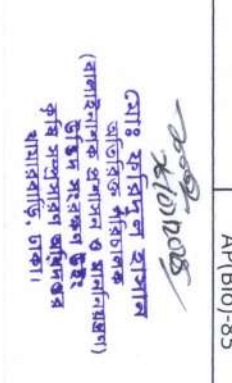 AP(Bio)-85
মোঃ ফরিদুল হাসান
অতিরিক্ত পরিচালক
(বালাইনাশক প্রশাসন ও মাননিয়ন্ত্রণ)
উদ্ভিদ সংরক্ষণ উইং
কৃষি সম্প্রসারণ অধিদপ্তর
খামারবাড়ি, ঢাকা।